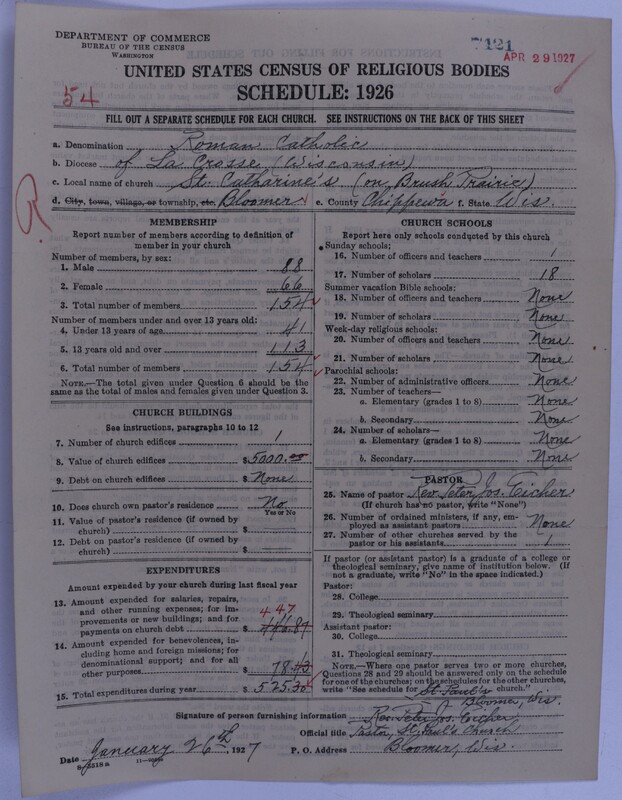 DEPARTMENT OF COMMERCE
BUREAU OF THE CENSUS
WASHINGTON
7121
APR 29 1927
UNITED STATES CENSUS OF RELIGIOUS BODIES
SCHEDULE: 1926
54
FILL OUT A SEPARATE SCHEDULE FOR EACH CHURCH. SEE INSTRUCTIONS ON THE BACK OF THIS SHEET
a. Denomination Roman Catholic
b. Diocese of La Crosse (Wisconsin)
c. Local name of church St. Catharine's (on Brush Prairie)
d. City, town, village, or township, etc. Bloomer e. County Chippewa f. State Wis.
R
MEMBERSHIP
Report number of members according to definition of
member in your church
Number of members, by sex:
1. Male 88
2. Female 66
3. Total number of members 154
Number of members under and over 13 years old:
4. Under 13 years of age 41
5. 13 years old and over 113
6. Total number of members 154
NOTE.—The total given under Question 6 should be
same as the total of males and females given under Question 3.
CHURCH BUILDINGS
See instructions, paragraphs 10 to 12
7. Number of church edifices 1
8. Value of church edifices $5000.00
9. Debt on church edifices $ None
10. Does church own pastor's residence No
Yes or No
11. Value of pastor's residence (if owned by
church) $
12. Debt on pastor's residence (if owned by
church) $
EXPENDITURES
Amount expended by your church during last fiscal year
13. Amount expended for salaries, repairs,
and other running expenses; for im-
provements or new buildings; and for
payments on church debt $ 446.87
447
14. Amount expended for benevolences, in-
cluding home and foreign missions; for
denominational support; and for all
other purposes $ 78.43
15. Total expenditures during year $ 525.30
CHURCH SCHOOLS
Report here only schools conducted by this church
Sunday schools:
16. Number of officers and teachers 1
17. Number of scholars 18
Summer vacation Bible schools:
18. Number of officers and teachers None
19. Number of scholars None
Week-day religious schools:
20. Number of officers and teachers None
21. Number of scholars None
Parochial schools:
22. Number of administrative officers None
23. Number of teachers—
a. Elementary (grades 1 to 8) None
b. Secondary None
24. Number of scholars—
a. Elementary (grades 1 to 8) None
b. Secondary None
PASTOR
25. Name of pastor Rev. Peter Jos. Eicher
(If church has no pastor, write "None")
26. Number of ordained ministers, if any, em-
ployed as assistant pastors None
27. Number of other churches served by the
pastor or his assistants 1
If pastor (or assistant pastor) is a graduate of a college or
theological seminary, give name of institution below. (If
not a graduate, write "No" in the space indicated.)
Pastor:
28. College
29. Theological seminary
Assistant pastor:
30. College
31. Theological seminary
NOTE.—Where one pastor serves two or more churches,
Questions 28 and 29 should be answered only on the schedule
for one of the churches; on the schedules for the other churches,
write "See schedule for St. Paul's church."
Bloomer, Wis.
Signature of person furnishing information Rev. Peter Jos. Eicher
Official title Pastor, St. Paul's Church
Date January 26th, 1927 P. O. Address Bloomer, Wis.
8-5518a